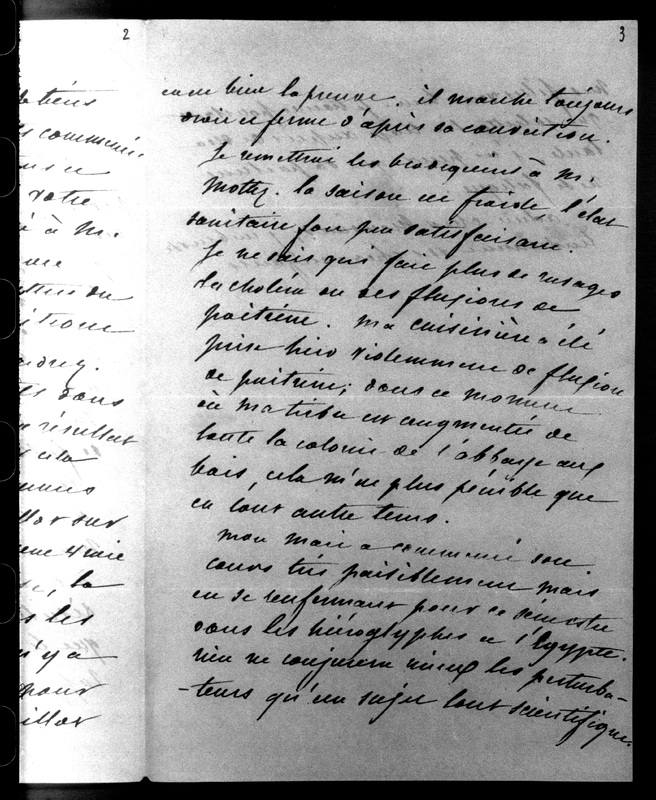 2
3
le tiens
commencé
votre
à M.
dans
résultat
cela
sur
, la
les
n'y a
pour
en ce bien la preuve. il marche toujours
droit et ferme d'après sa conviction.
Je remettrai les brodequins à M.
Mottez. la saison est froide, l'état
sanitaire fort peu satisfaisant.
Je ne sais qui fait plus de ravages
du choléra ou des fluxions de
poitrine. ma cuisinière a été
prise hier violemment de fluxion
de poitrine; dans ce moment
où ma tribu est augmentée de
toute la colonie de l'abbaye aux
bois, cela m'est plus pénible que
en tout autre tems.
mon mari a commencé son
cours très paisiblement mais
en se renfermant pour ce semestre
dans les hiéroglyphes et l'Egypte.
rien ne conjurera mieux les perturba-
-teurs qu'un sujet tout scientifique.